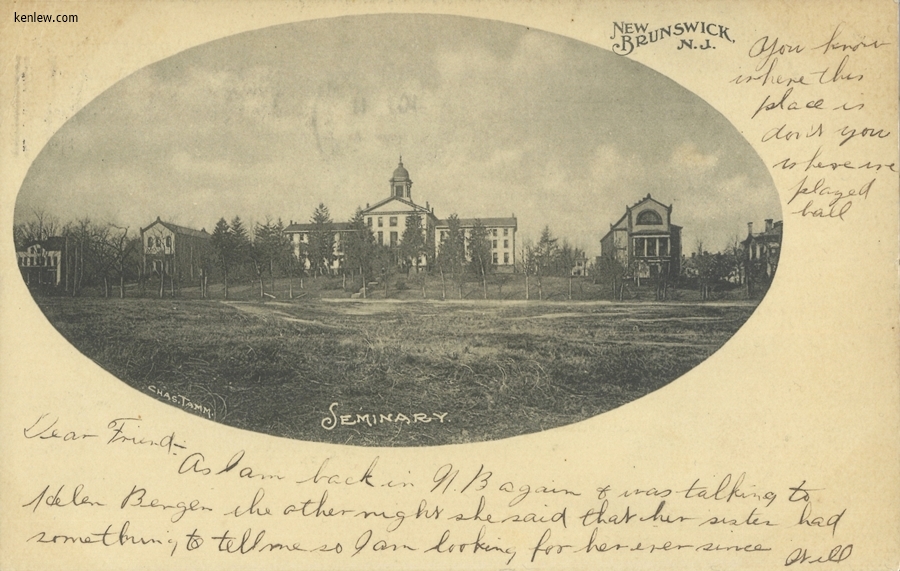 kenlew.com
NEW
BRUNSWICK,
N.J.
You know
where this
place is
don't you
where we
played
ball
CHAS. TAMM.
SEMINARY.
Dear Friend:
As I am back in N.B again & was talking to
Helen Bergen the other night she said that her sister had
something to tell me so I am looking for her ever since
Will